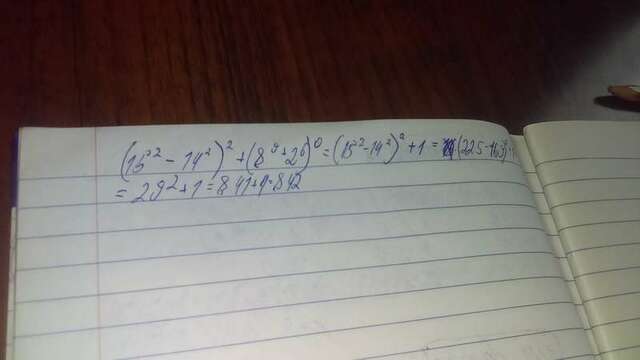 (15² - 14²)² + (8⁹ + 2⁶)⁰ = (15² - 14²)² + 1 = (225 -
= 29² + 1 = 841 + 1 = 842